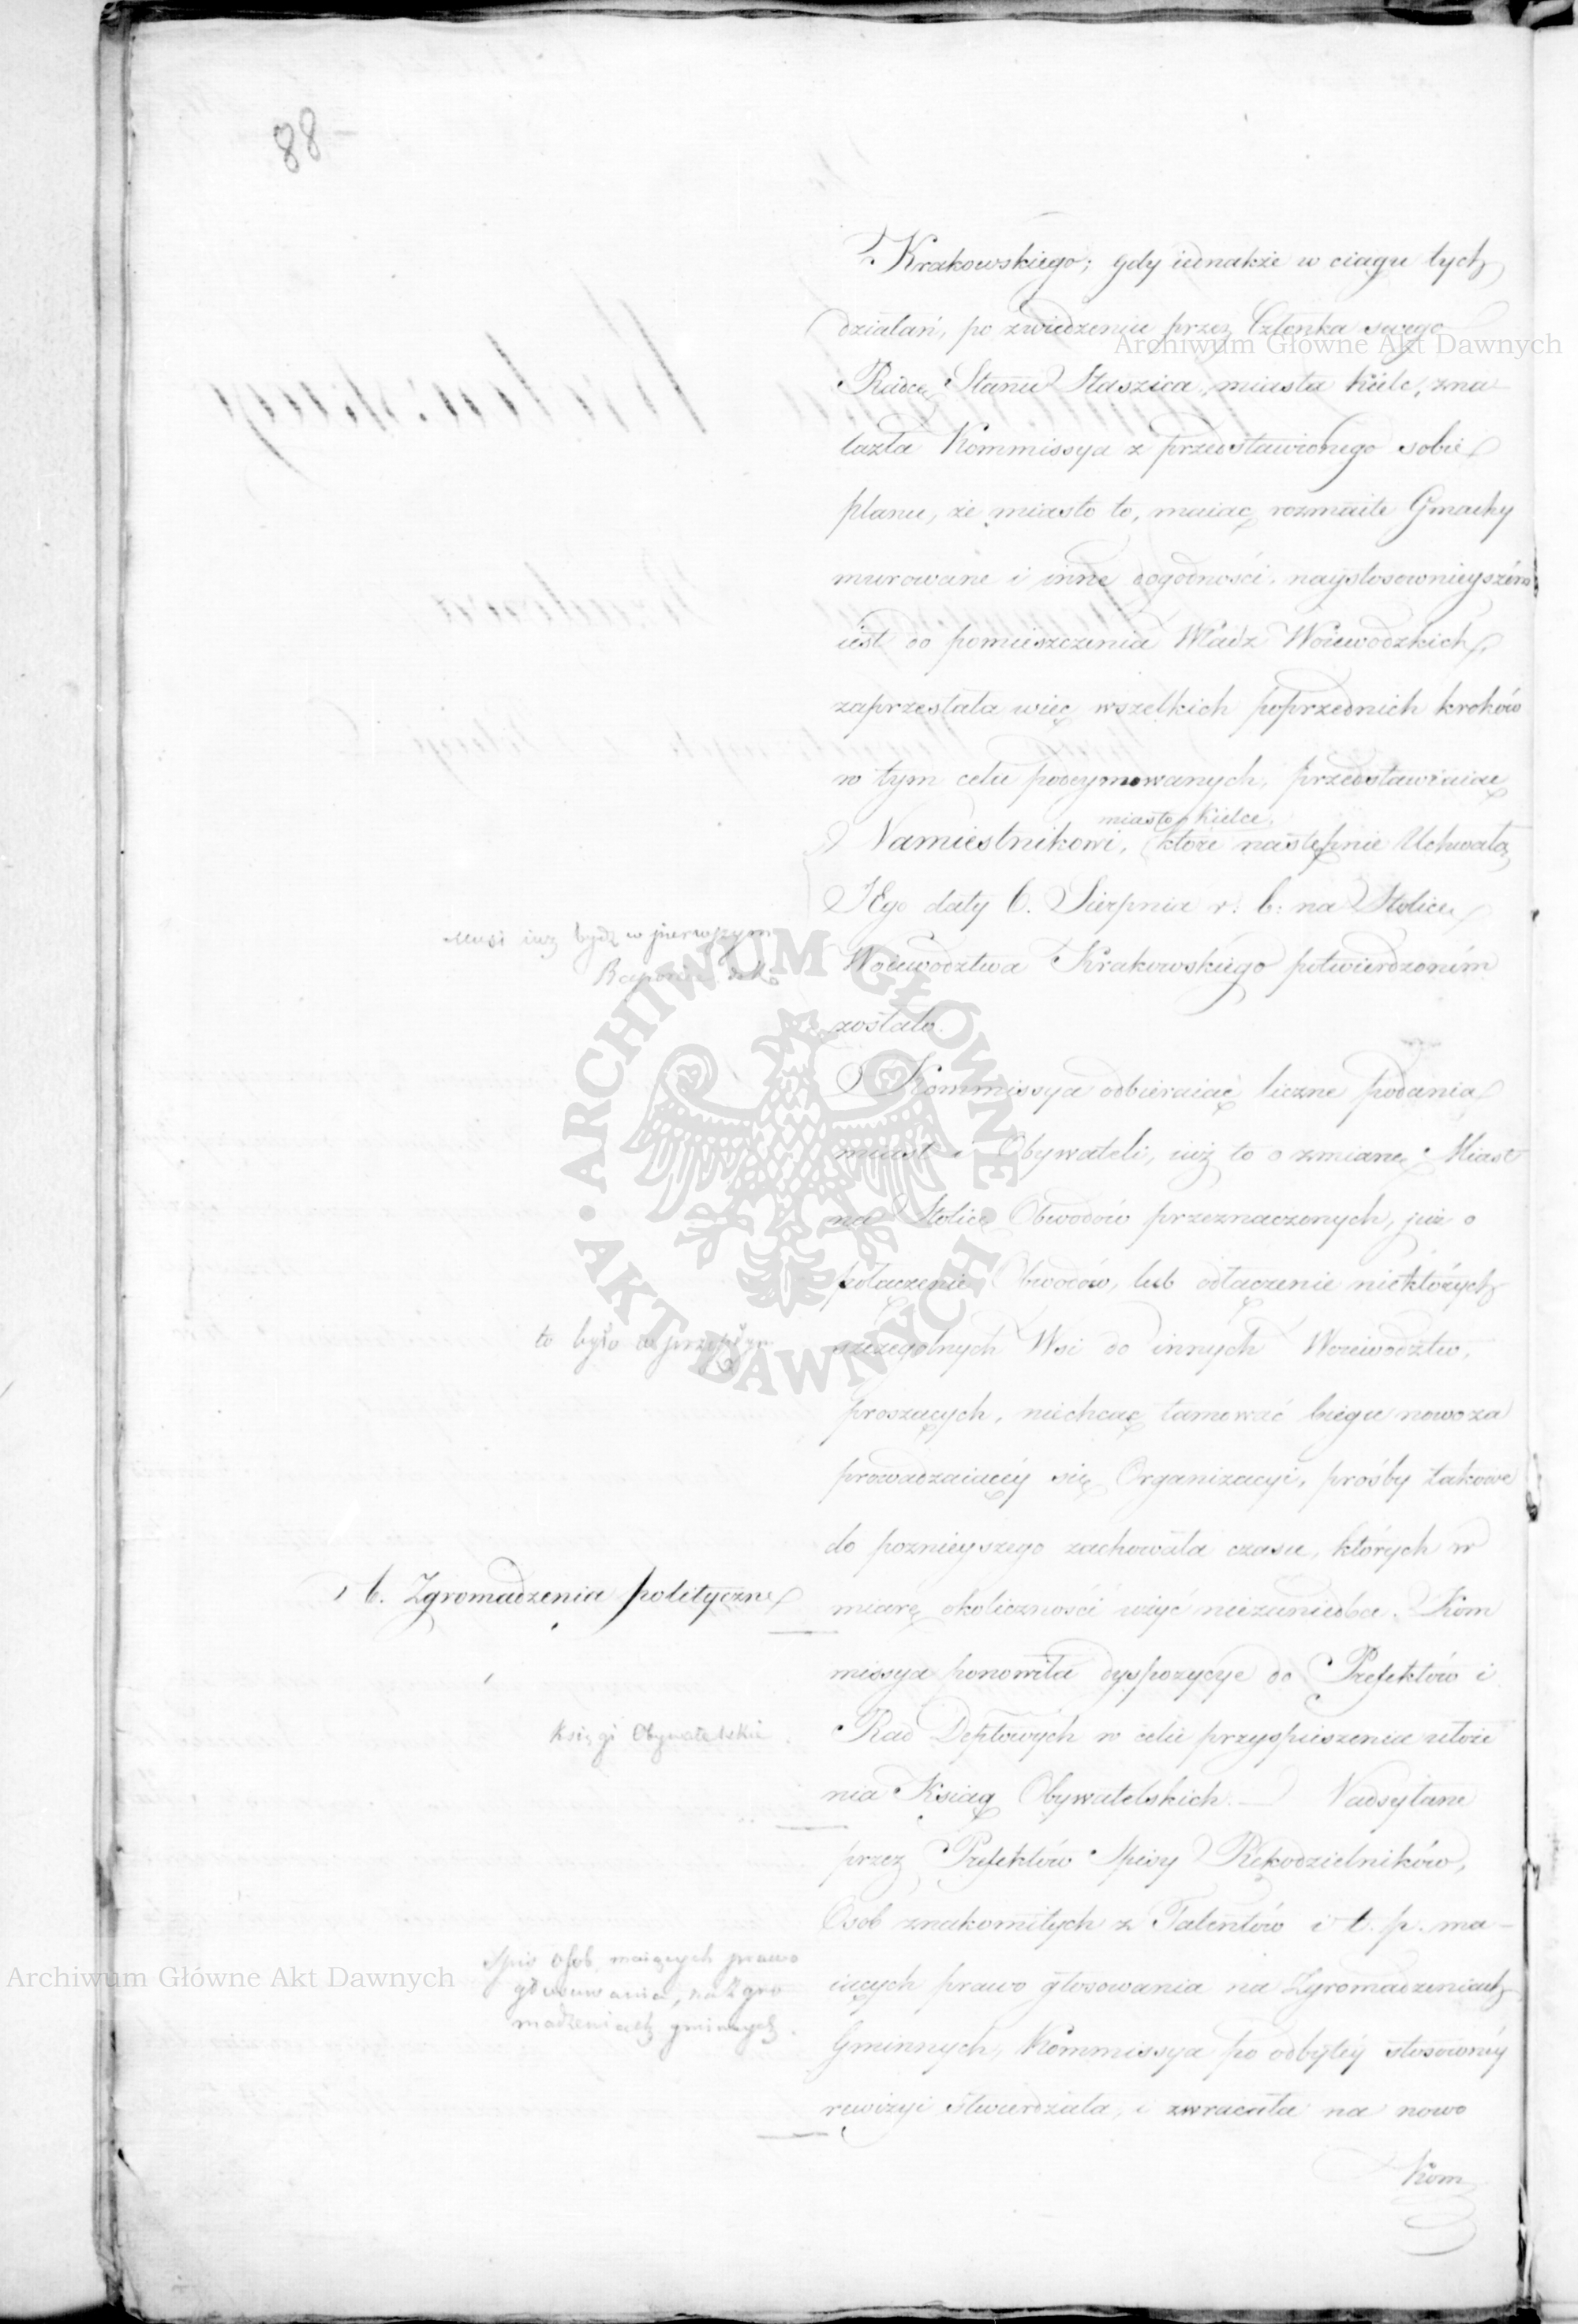 88
Krakowskiego; gdy iednakże w ciągu tych
działań, po zwiedzeniu przez Członka swego
Radcę Stanu Staszica, miasta Kielc, zna
lazła Kommissya z przedstawionego sobie
planu, że miasto to, maiąc rozmaite Gmachy
murowane i inne dogodności, naystosownieyszém
iest do pomieszczenia Władz Woiewodzkich,
zaprzestała więc wszelkich poprzednich kroków
w tym celu podeymowanych, przedstawiaiąc
miasto Kielce,
Namiestnikowi, które następnie Uchwałą
JEgo daty 6. Sierpnia r. b: na Stolicę
Musi iuż bydź w pierwszym
Woiewodztwa Krakowskiego potwierdzoném
zostało.
Kommissya odbieraiąc liczne podania
miast i Obywateli, iuż to o zmianę Miast
na Stolice Obwodów przeznaczonych, już o
połączenie Obwodów, lub odłączenie niektórych
to było w przeszłym
szczegolnych Wsi do innych Woiewództw,
proszących, niechcąc tamować biegu nowoza
prowadzaiącéy się Organizacyi, prośby takowe
do poznieyszego zachowała czasu, których w
6. Zgromadzenia polityczne
miarę okoliczności użyc niezaniedba. Kom
missya ponowiła dyspozycye do Prefektów i
Księgi Obywatelskie
Rad Deptowych w celu przyspieszenia ułoże
nia Ksiąg Obywatelskich. — Nadsyłane
przez Prefektów Spisy Rękodzielników,
Osób znakomitych z Talentów i t. p. ma-
Spis Osób, maiących prawo
głosowania, na Zgro
madzeniach gminnych.
iących prawo głosowania na Zgromadzeniach
Gminnych, Kommissya po odbytéy stosownéy
rewizyi stwierdzała, i zwracała na nowo
Kom
Archiwum Główne Akt Dawnych
Archiwum Główne Akt Dawnych
ARCHIWUM GŁÓWNE • AKT DAWNYCH •